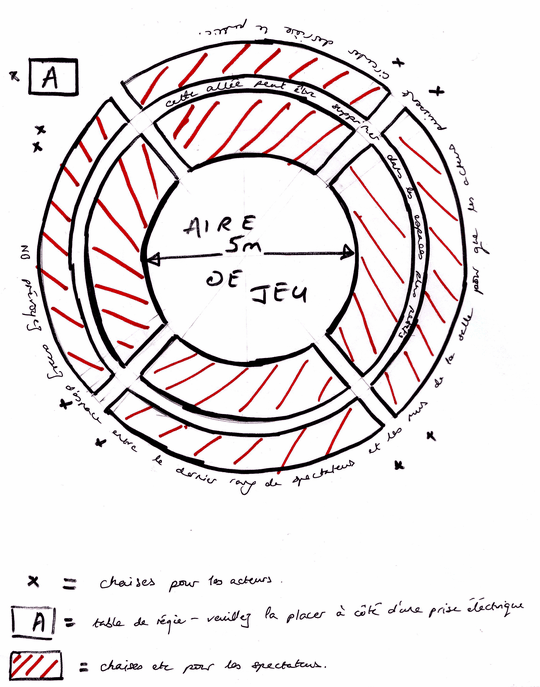 A
cette allée peut être supprimée dans les espaces plus petits
AIRE
5m
DE
JEU
NB prévoyez d'espace entre le dernier rang de spectateurs et les murs de la salle pour que les acteurs puissent circuler derrière le public.
x = chaises pour les acteurs.
A = table de régie – veuillez la placer à côté d'une prise électrique
= chaises etc pour les spectateurs.